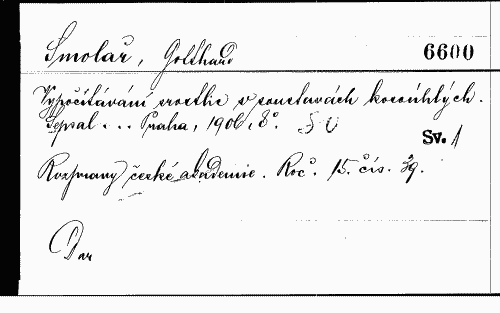 Smolař, Gotthard
6600
Vypočítávání srostlic v soustavách kosoúhlých.
Sepsal ... Praha, 1906, 8°.
Sv. 1
Rozpravy české akademie. Roč. 15. čís. 39.
Dar